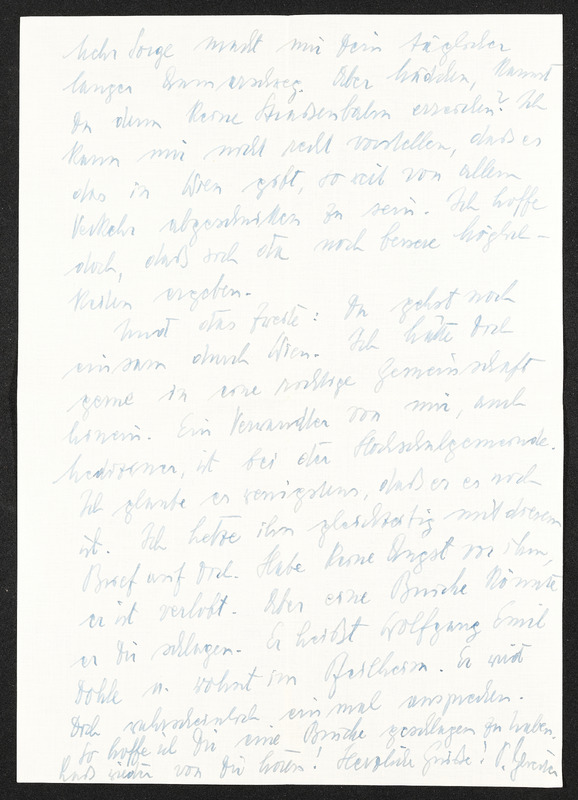 Mehr Sorge macht mir Dein täglicher
langer Anmarschweg. Aber Mädchen, kannst
Du denn keine Strassenbahn erreichen? Ich
kann mir nicht recht vorstellen, daß es
das in Wien gibt, so weit von allem
Verkehr abgeschnitten zu sein. Ich hoffe
doch, daß sich da noch bessere Möglich-
keiten ergeben.
Und das Zweite: Du gehst noch
einsam durch Wien. Ich hätte Dich
gerne in eine richtige Gemeinschaft
hinein. Ein Verwandter von mir, auch
Mediziner, ist bei der Hochschulgemeinde.
Ich glaube es wenigstens, daß er es noch
ist. Ich hetze ihn gleichzeitig mit diesem
Brief auf Dich. Habe keine Angst vor ihm,
er ist verlobt. Aber eine Brücke könnte
er Dir schlagen. Er heißt Wolfgang Emil
Dohle u. wohnt im Pfeilheim. Er wird
Dich wahrscheinlich einmal ansprechen.
So hoffe ich Dir eine Brücke geschlagen zu haben.
Laß wieder von Dir hören. Herzliche Grüße! P.